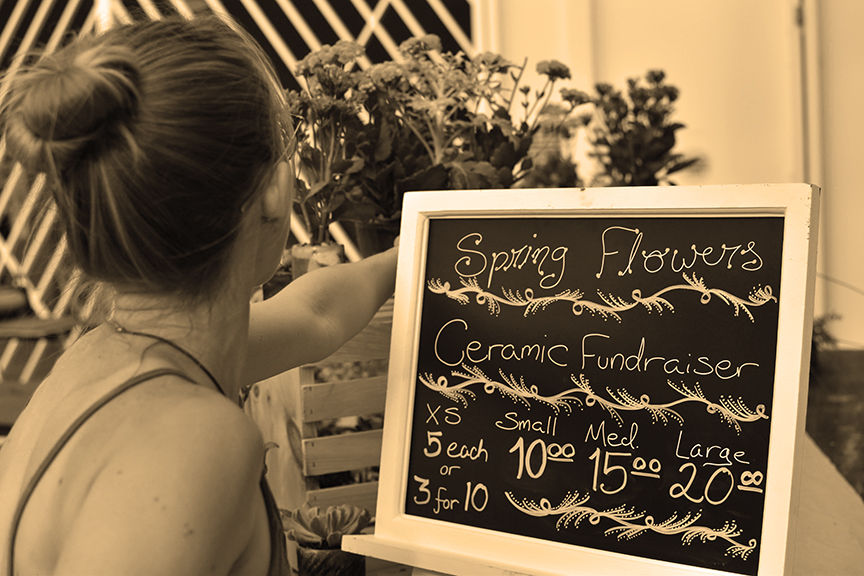 Spring Flowers
Ceramic Fundraiser
XS Small Med. Large
5 each 10.00 15.00 20.00
or
3 for 10